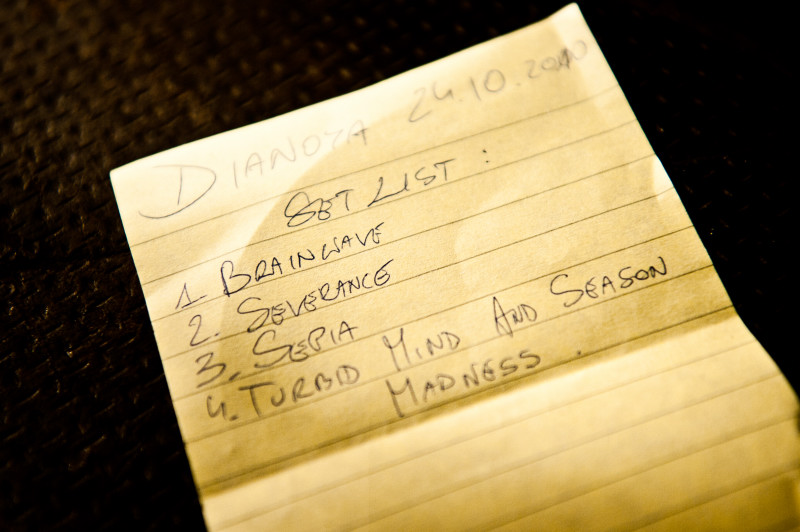 DIANOYA 24.10.2010
SET LIST :
1 BRAINWAVE
2. SEVERANCE
3. SEPIA
4. TURBID MIND AND SEASON
MADNESS.